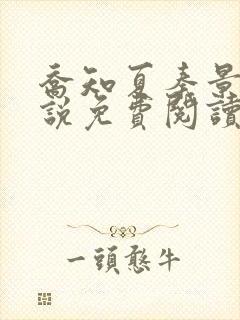 喬知夏奉景
說免費閱讀
一頭憨牛